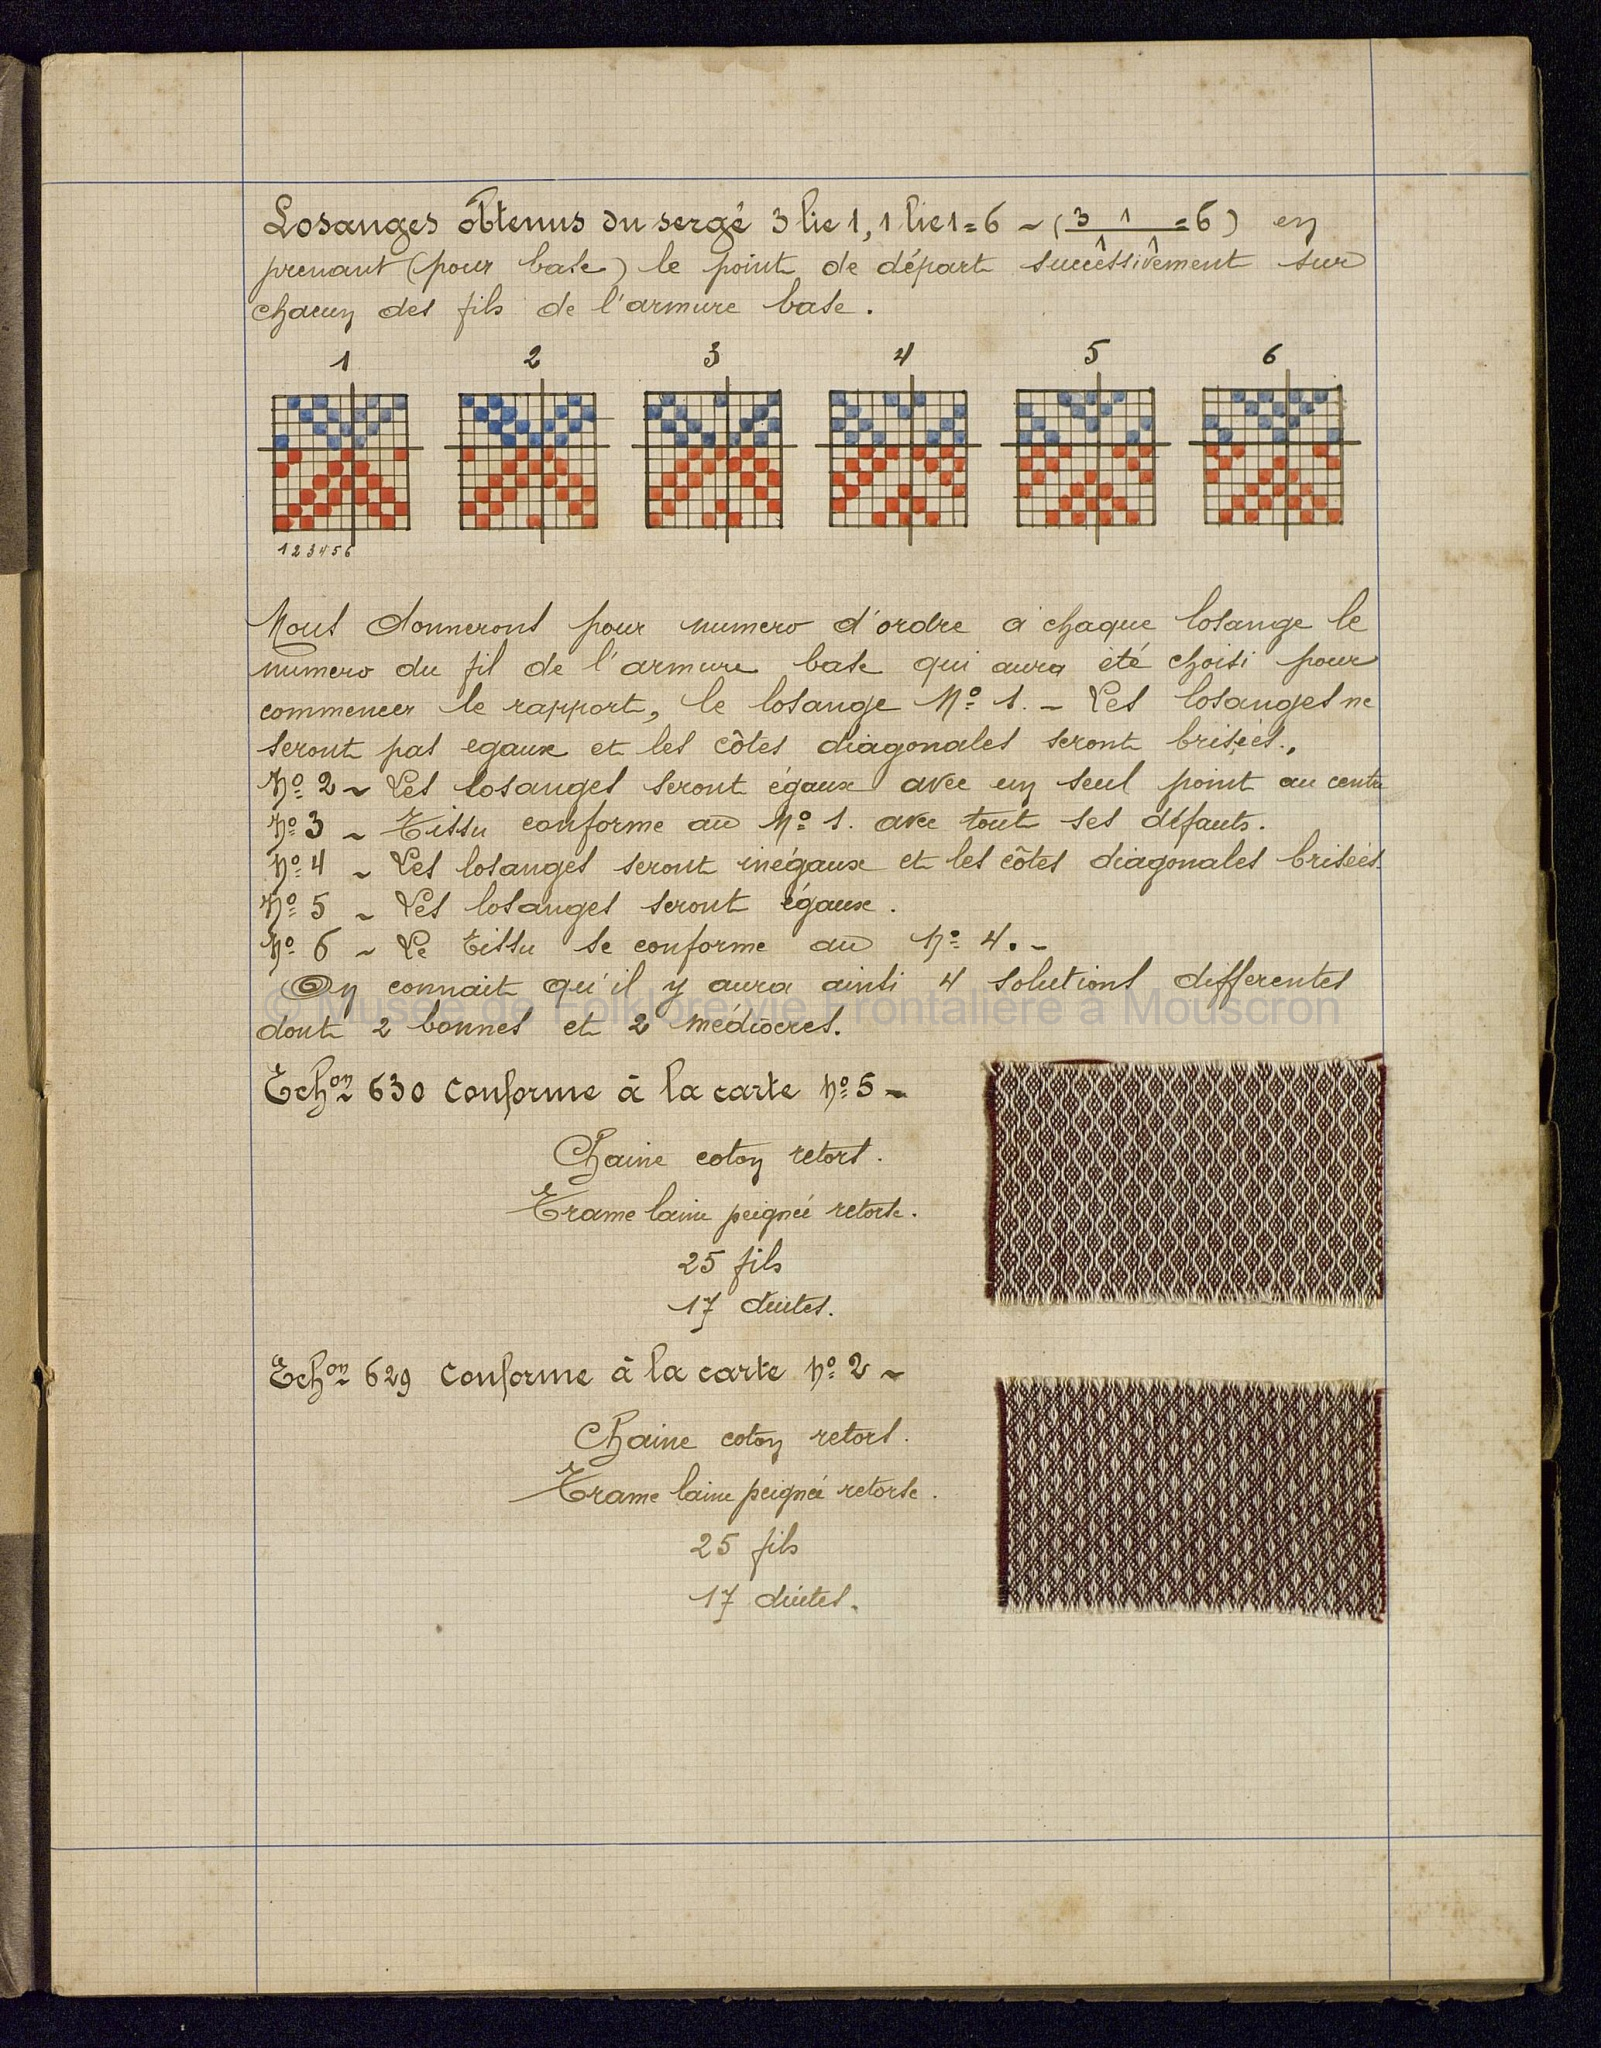 Losanges obtenus du sergé 3 lie 1, 1 lie 1 = 6 ~ ( 3 1 = 6 ) en
1 1
prenant (pour base) le point de départ successivement sur
chacun des fils de l'armure base.
1 2 3 4 5 6
1 2 3 4 5 6
Nous donnerons pour numero d'ordre à chaque losange le
numero du fil de l'armure base qui aura été choisi pour
commencer le rapport, le losange No 1. - Les losanges ne
seront pas egaux et les côtes diagonales seront brisées.,
No 2 ~ Les losanges seront égaux avec un seul point au centre
No 3 ~ Tissu conforme au No 1. avec tout ses défauts.
No 4 ~ Les losanges seront inégaux et les côtes diagonales brisées.
No 5 ~ Les losanges seront égaux.
No 6 ~ Le Tissu se conforme au No 4. -
On connait qu'il y aura ainsi 4 solutions differentes
© Musée de Folklore vie Frontalière à Mouscron
dont 2 bonnes et 2 médiocres.
Echon 630 Conforme à la carte No 5 ~
Chaine coton retors.
Trame laine peignée retorse.
25 fils
17 duites.
Echon 629 Conforme à la carte No 2 ~
Chaine coton retors.
Trame laine peignée retorse.
25 fils
17 duites.